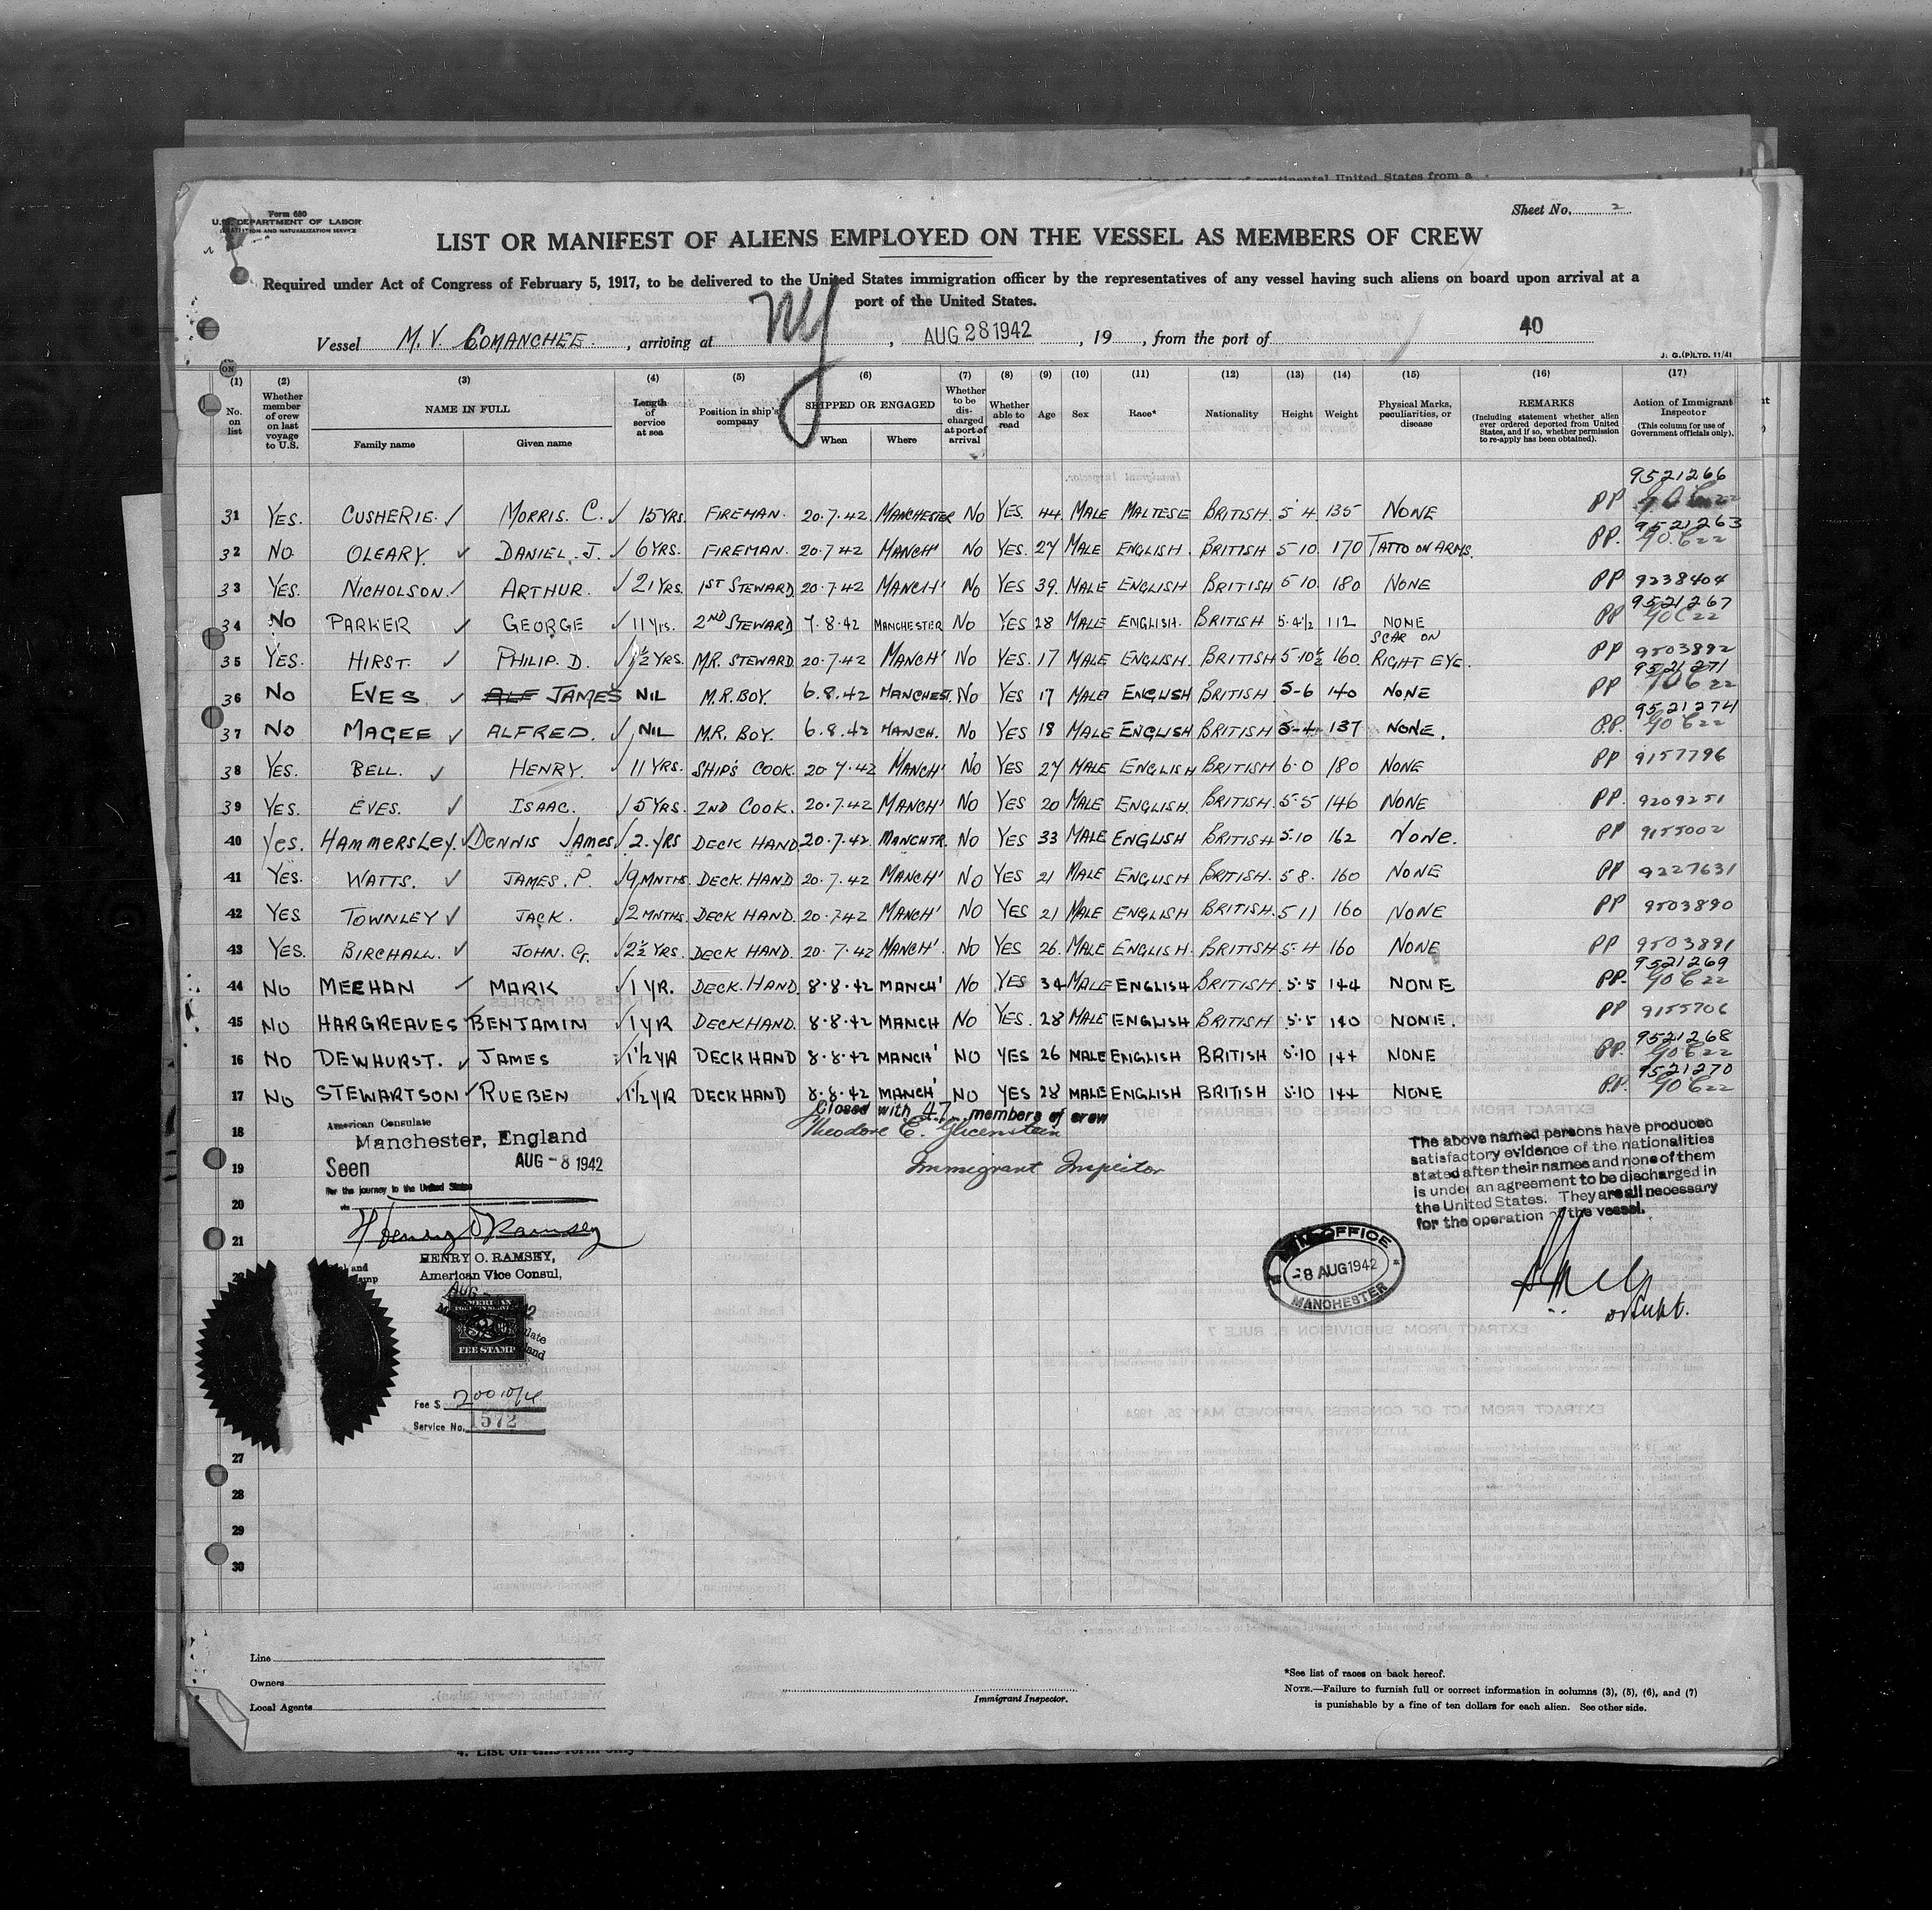 Form 680
U.S. DEPARTMENT OF LABOR
IMMIGRATION AND NATURALIZATION SERVICE
Sheet No. 2
LIST OR MANIFEST OF ALIENS EMPLOYED ON THE VESSEL AS MEMBERS OF CREW
Required under Act of Congress of February 5, 1917, to be delivered to the United States immigration officer by the representatives of any vessel having such aliens on board upon arrival at a
port of the United States.
Vessel M. V. COMANCHEE, arriving at NY, AUG 28 1942, 19 , from the port of 40
J. G. (P)LTD. 11/41
(1) (2) (3) (4) (5) (6) (7) (8) (9) (10) (11) (12) (13) (14) (15) (16) (17)
No. on list
Whether member of crew on last voyage to U.S.
NAME IN FULL
Family name Given name
Length of service at sea
Position in ship's company
SHIPPED OR ENGAGED
When Where
Whether to be discharged at port of arrival
Whether able to read
Age
Sex
Race*
Nationality
Height
Weight
Physical Marks, peculiarities, or disease
REMARKS
(Including statement whether alien ever ordered deported from United States, and if so, whether permission to re-apply has been obtained).
Action of Immigrant Inspector
(This column for use of Government officials only).
9521266
31 YES. CUSHERIE. MORRIS. C. 15 YRS. FIREMAN. 20.7.42. MANCHESTER NO YES. 44. MALE MALTESE BRITISH. 5 4. 135 NONE PP
9521263
32 NO. OLEARY. DANIEL. J. 6 YRS. FIREMAN. 20.7.42 MANCH' NO YES. 27 MALE ENGLISH. BRITISH. 5 10. 170 TATTO ON ARMS. PP.
33 YES. NICHOLSON. ARTHUR. 21 YRS. 1ST STEWARD. 20.7.42 MANCH' NO YES 39. MALE ENGLISH BRITISH 5 10. 180 NONE PP 9238404
9521267
34 NO PARKER GEORGE 11 Yrs. 2ND STEWARD 7.8.42 MANCHESTER NO YES 28 MALE ENGLISH. BRITISH 5.4½ 112 NONE PP
SCAR ON
35 YES. HIRST. PHILIP. D. 1½ YRS. M.R. STEWARD 20.7.42 MANCH' NO YES. 17 MALE ENGLISH. BRITISH 5-10½ 160 RIGHT EYE. PP 9503892
9521271
36 NO EVES ALF JAMES NIL M.R. BOY. 6.8.42 MANCHEST. NO YES 17 MALE ENGLISH BRITISH 5-6 140 NONE PP
9521274
37 NO MAGEE ALFRED. NIL M.R. BOY. 6.8.42 MANCH. NO YES 18 MALE ENGLISH BRITISH 5-4 137 NONE. P.P.
38 YES. BELL. HENRY. 11 YRS. SHIP'S COOK. 20.7.42 MANCH' NO YES 27 MALE ENGLISH BRITISH 6-0 180 NONE PP 9157796
39 YES. EVES. ISAAC. 5 YRS. 2ND COOK. 20.7.42 MANCH' NO YES 20 MALE ENGLISH. BRITISH. 5-5 146 NONE PP. 9209251
40 Yes. HAMMERSLEY. DENNIS JAMES. 2. YRS DECK HAND 20.7.42. MANCHTR. NO YES 33 MALE ENGLISH BRITISH 5-10 162 NONE. PP 9155002
41 YES. WATTS. JAMES. P. 9 MNTHS. DECK. HAND 20.7.42 MANCH' NO YES 21 MALE ENGLISH BRITISH. 5 8. 160 NONE PP 9227631
42 YES TOWNLEY JACK. 2 MNTHS. DECK HAND. 20.7.42 MANCH' NO YES 21 MALE ENGLISH BRITISH. 5 11 160 NONE PP 9503890
43 YES. BIRCHALL. JOHN. G. 2½ YRS. DECK HAND. 20.7.42 MANCH'. NO YES 26. MALE ENGLISH. BRITISH. 5-4 160 NONE PP 9503891
9521269
44 NO MEEHAN MARK 1 YR. DECK. HAND. 8.8.42 MANCH' NO YES 34 MALE ENGLISH BRITISH. 5.5 144 NONE PP.
45 NO HARGREAVES BENJAMIN 1 YR DECK HAND. 8.8.42 MANCH NO YES. 28 MALE ENGLISH BRITISH 5.5 140 NONE. PP 9155706
9521268
16 NO DEWHURST. JAMES 1½ YR DECK HAND 8.8.42 MANCH' NO YES 26 MALE ENGLISH BRITISH 5.10 144 NONE PP.
9521270
17 NO STEWARTSON RUEBEN 1½ YR DECK HAND 8.8.42 MANCH' NO YES 28 MALE ENGLISH BRITISH 5.10 144 NONE P.P.
Closed with 47 members of crew
Theodore C. Glicenstein
Immigrant Inspector
18
19
20
21
27
28
29
30
American Consulate
Manchester, England
Seen AUG - 8 1942
For the journey to the United States
via
Henry O Ramsey
HENRY O. RAMSEY,
American Vice Consul,
FEE STAMP
Fee $ 2 00
Service No. 1572
The above named persons have produced
satisfactory evidence of the nationalities
stated after their names and none of them
is under an agreement to be discharged in
the United States. They are all necessary
for the operation of the vessel.
IMM. OFFICE
- 8 AUG 1942
MANCHESTER
Line
Owners
Local Agents
Immigrant Inspector.
*See list of races on back hereof.
NOTE.—Failure to furnish full or correct information in columns (3), (5), (6), and (7)
is punishable by a fine of ten dollars for each alien. See other side.